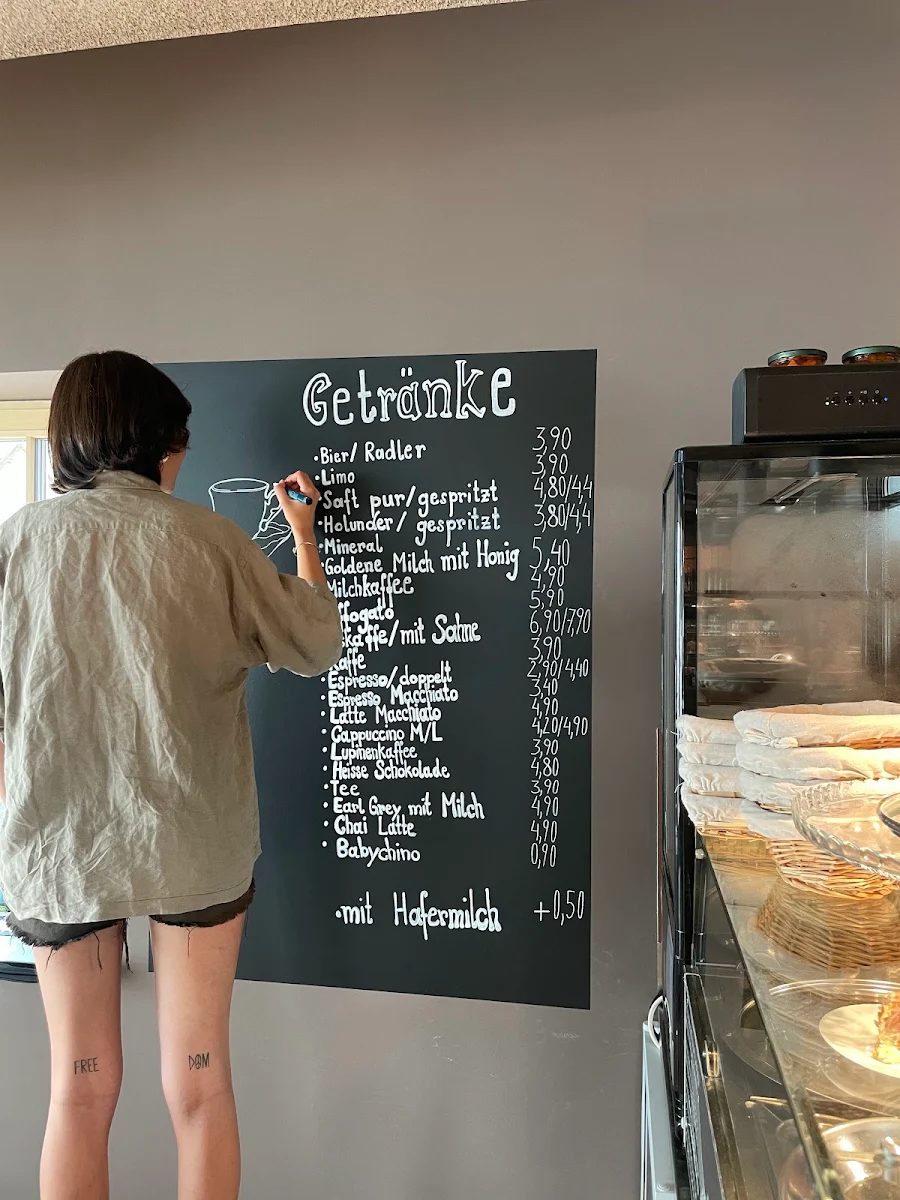 Getränke
·Bier/ Radler 3,90
·Limo 3,90
·Saft pur/gespritzt 4,80/4,4
·Holunder/ gespritzt 3,80/4,4
·Mineral
·Goldene Milch mit Honig 5,40
Milchkaffee 4,90
ffogato 5,90
skaffe/mit Sahne 6,90/7,90
Kaffe 3,90
·Espresso/doppelt 2,90/4,40
·Espresso Macchiato 3,40
·Latte Macchiato 4,90
·Cappuccino M/L 4,20/4,90
·Lupinenkaffee 3,90
·Heisse Schokolade 4,80
·Tee 3,90
·Earl Grey mit Milch 4,90
·Chai Latte 4,90
·Babychino 0,90
·mit Hafermilch +0,50
FREE DOM